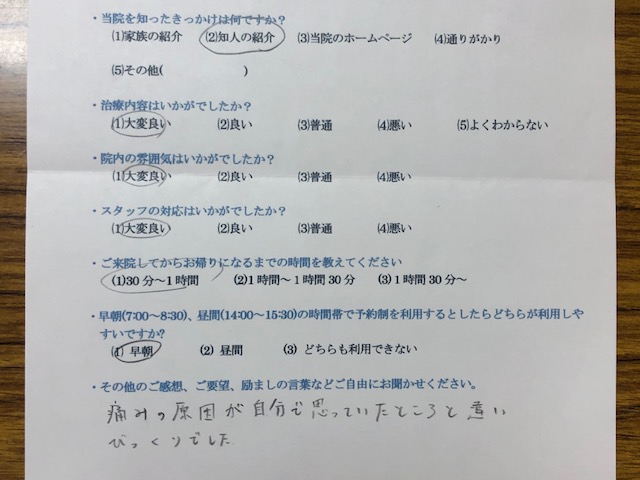 ・当院を知ったきっかけは何ですか？
(1)家族の紹介 (2)知人の紹介 (3)当院のホームページ (4)通りがかり
(5)その他( )
・治療内容はいかがでしたか？
(1)大変良い (2)良い (3)普通 (4)悪い (5)よくわからない
・院内の雰囲気はいかがでしたか？
(1)大変良い (2)良い (3)普通 (4)悪い
・スタッフの対応はいかがでしたか？
(1)大変良い (2)良い (3)普通 (4)悪い
・ご来院してからお帰りになるまでの時間を教えてください
(1)30分～1時間 (2)1時間～1時間30分 (3)1時間30分～
・早朝(7:00～8:30)、昼間(14:00～15:30)の時間帯で予約制を利用するとしたらどちらが利用しや
すいですか?
(1) 早朝 (2) 昼間 (3) どちらも利用できない
・その他のご感想、ご要望、励ましの言葉などご自由にお聞かせください。
痛みの原因が自分で思っていたところと違い
びっくりでした